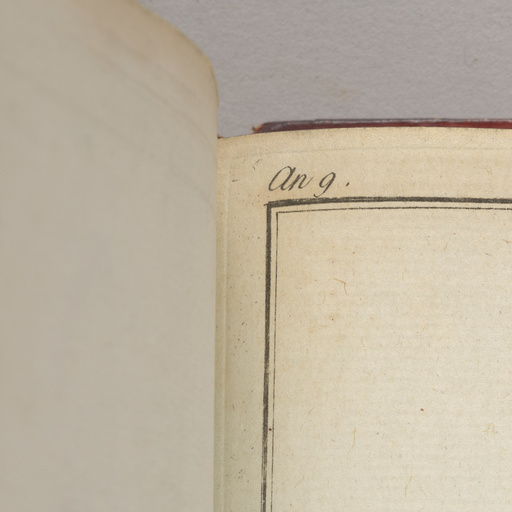 An 9.